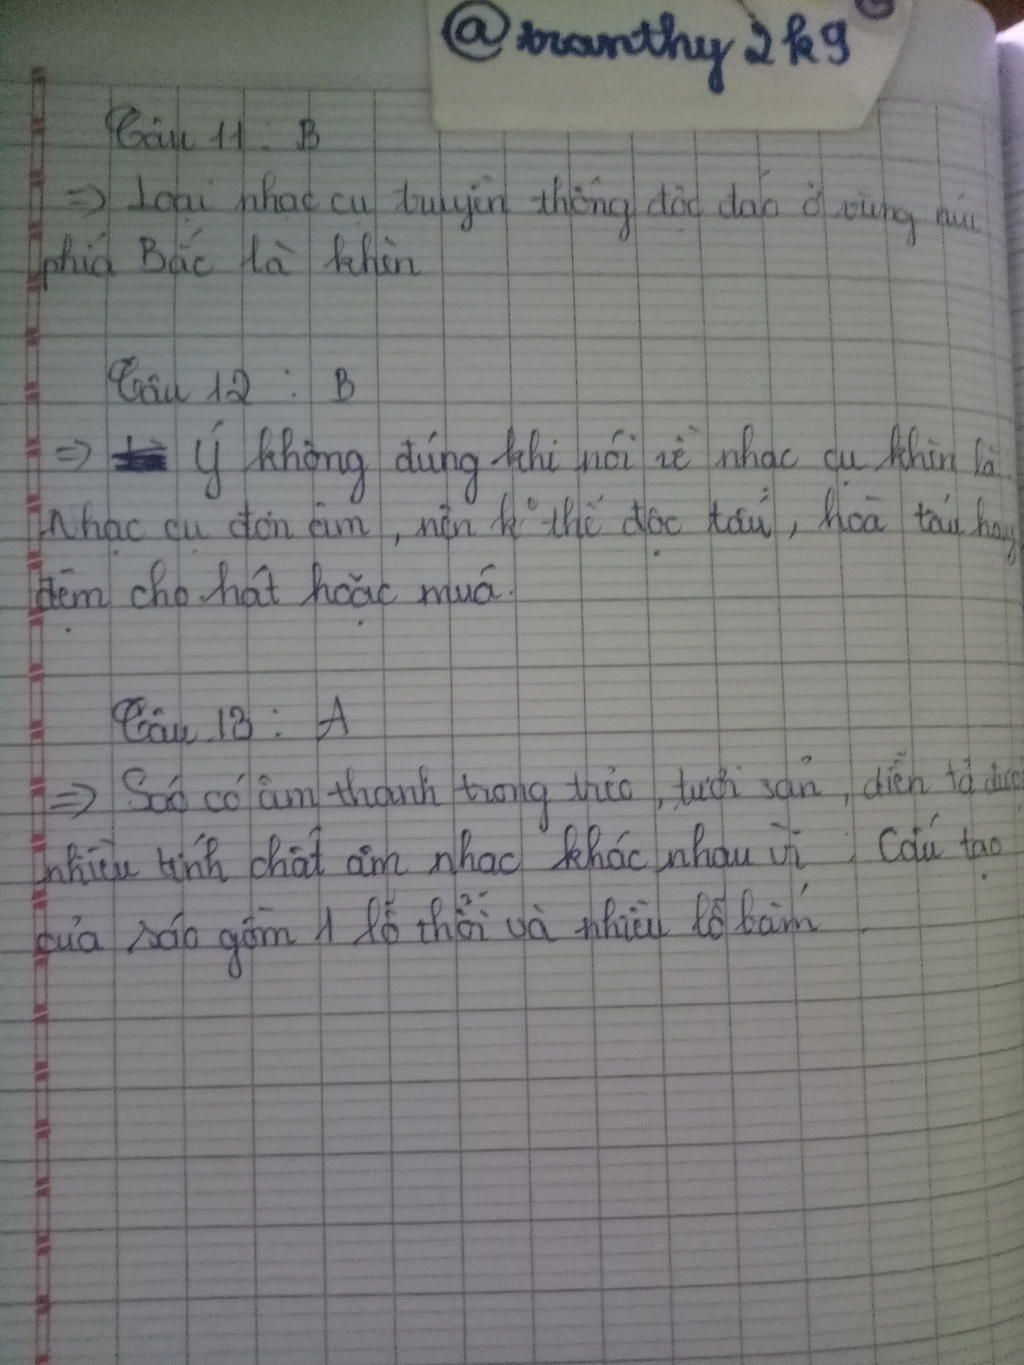 @tranthy2k9
Câu 11 : B
=> Loại nhạc cụ truyền thống độc đáo ở vùng núi
phía Bắc là khèn
Câu 12 : B
=> Ý không đúng khi nói về nhạc cụ khèn là
Nhạc cụ đơn âm, nên k° thể độc tấu, hoà tấu hay
đệm cho hát hoặc múa.
Câu 13 : A
=> Sáo có âm thanh trong trẻo, tươi sáng, diễn tả được
nhiều tính chất âm nhạc khác nhau vì : Cấu tạo
của sáo gồm 1 lỗ thổi và nhiều lỗ bấm